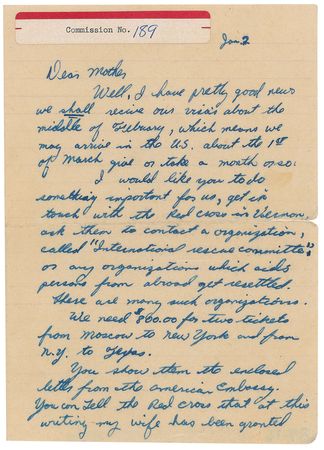 Commission No. 189
Jan. 2
Dear Mother,
Well, I have pretty good news
we shall recive our visas about the
middle of Feburary, which means we
may arrive in the U.S. about the 1st
of March give or take a month or so.
I would like you to do
something important for us, get in
touch with the Red Cross in Vernon,
ask them to contact a organization,
called "International rescue committe",
or any organizations which aids
persons from abroad get resettled.
There are many such organizations.
We need $800.00 for two tickets
from Moscow to New York and from
N.Y. to Texas.
You show them the enclosed
letter from the American Embassy.
You can tell the Red Cross that at this
writing my wife has been granted